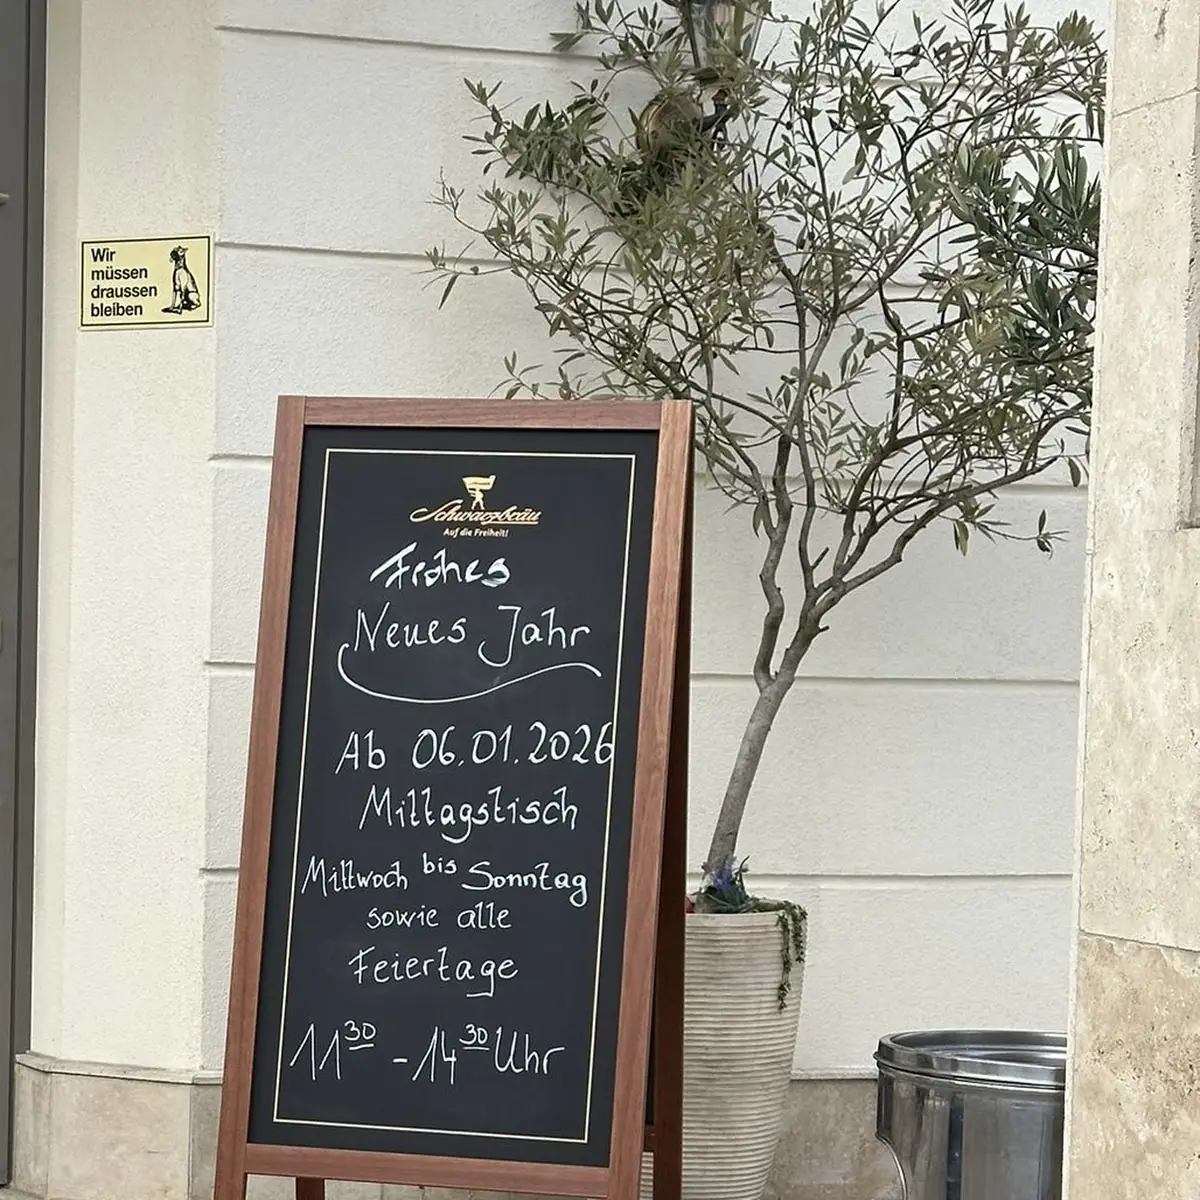 Wir
müssen
draussen
bleiben
Schwarzbräu
Auf die Freiheit!
Frohes
Neues Jahr
Ab 06.01.2026
Mittagstisch
Mittwoch bis Sonntag
sowie alle
Feiertage
11³⁰ - 14³⁰ Uhr